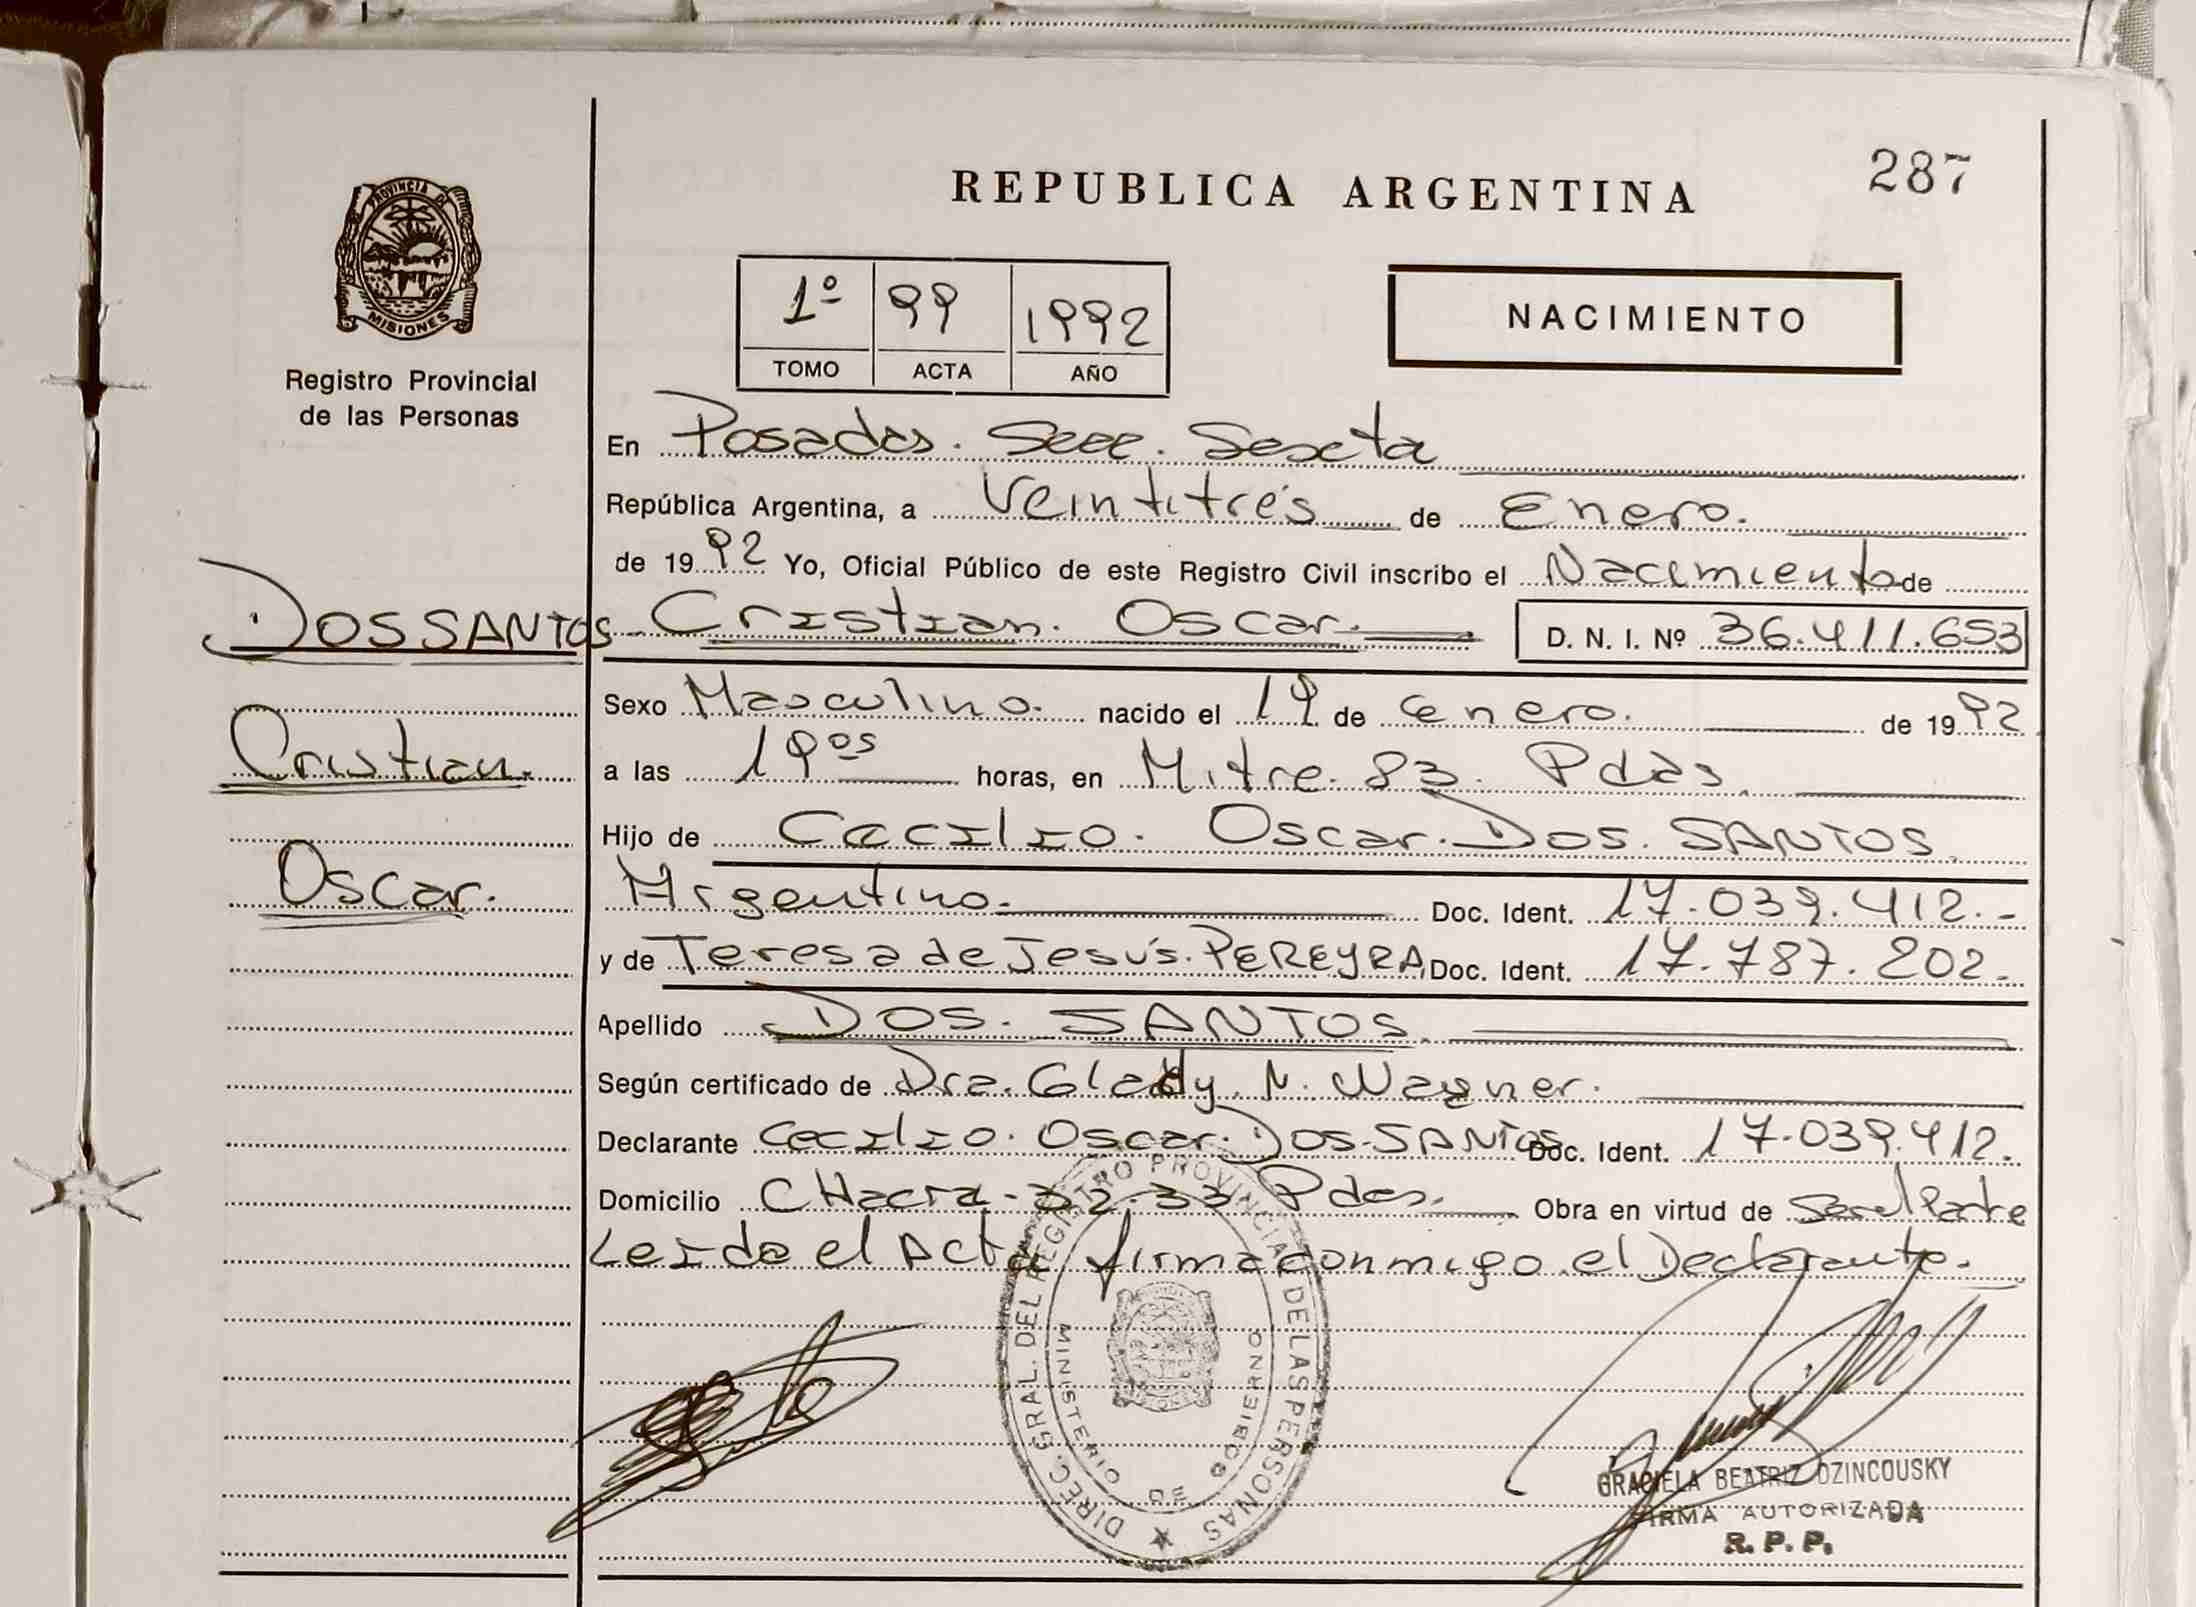 287
REPUBLICA ARGENTINA
PROVINCIA DE
MISIONES
Registro Provincial
de las Personas
1º 99 1992
TOMO ACTA AÑO
NACIMIENTO
En Posadas. Secc. Sexta
República Argentina, a Veintitrés de Enero.
de 1992 Yo, Oficial Público de este Registro Civil inscribo el Nacimiento de
DOS SANTOS Cristian. Oscar. D. N. I. Nº 36.411.653
Sexo Masculino. nacido el 19 de enero. de 1992
Cristian.
a las 19 os horas, en Mitre. 83. Pdas.
Hijo de Cecilio. Oscar. DOS. SANTOS.
Oscar.
Argentino. Doc. Ident. 17.039.412.-
y de Teresa de Jesús. PEREYRA Doc. Ident. 17.787.202.
Apellido DOS. SANTOS.
Según certificado de Dra. Glady. N. Wagner.
Declarante Cecilio. Oscar. DOS-SANTOS Doc. Ident. 17.039.412.
Domicilio CHacra-32.33 Pdas. Obra en virtud de Ser el Padre
Leido el Acta firma conmigo el Declarante.
DIREC. GRAL. DEL REGISTRO PROVINCIAL DE LAS PERSONAS
MINISTERIO DE GOBIERNO
GRACIELA BEATRIZ DZINCOUSKY
FIRMA AUTORIZADA
R. P. P.